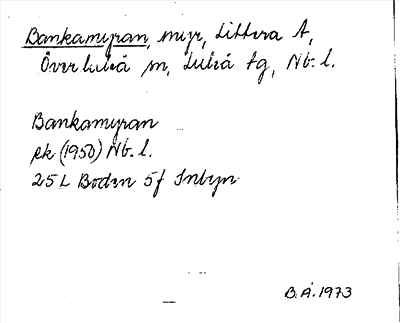 Bankamyran, myr, Littera A,
Överluleå sn, Luleå tg, Nb. l.
Bankamyran
ek (1950) Nb. l.
25 L Boden 5f Inbyn
B.Å. 1973